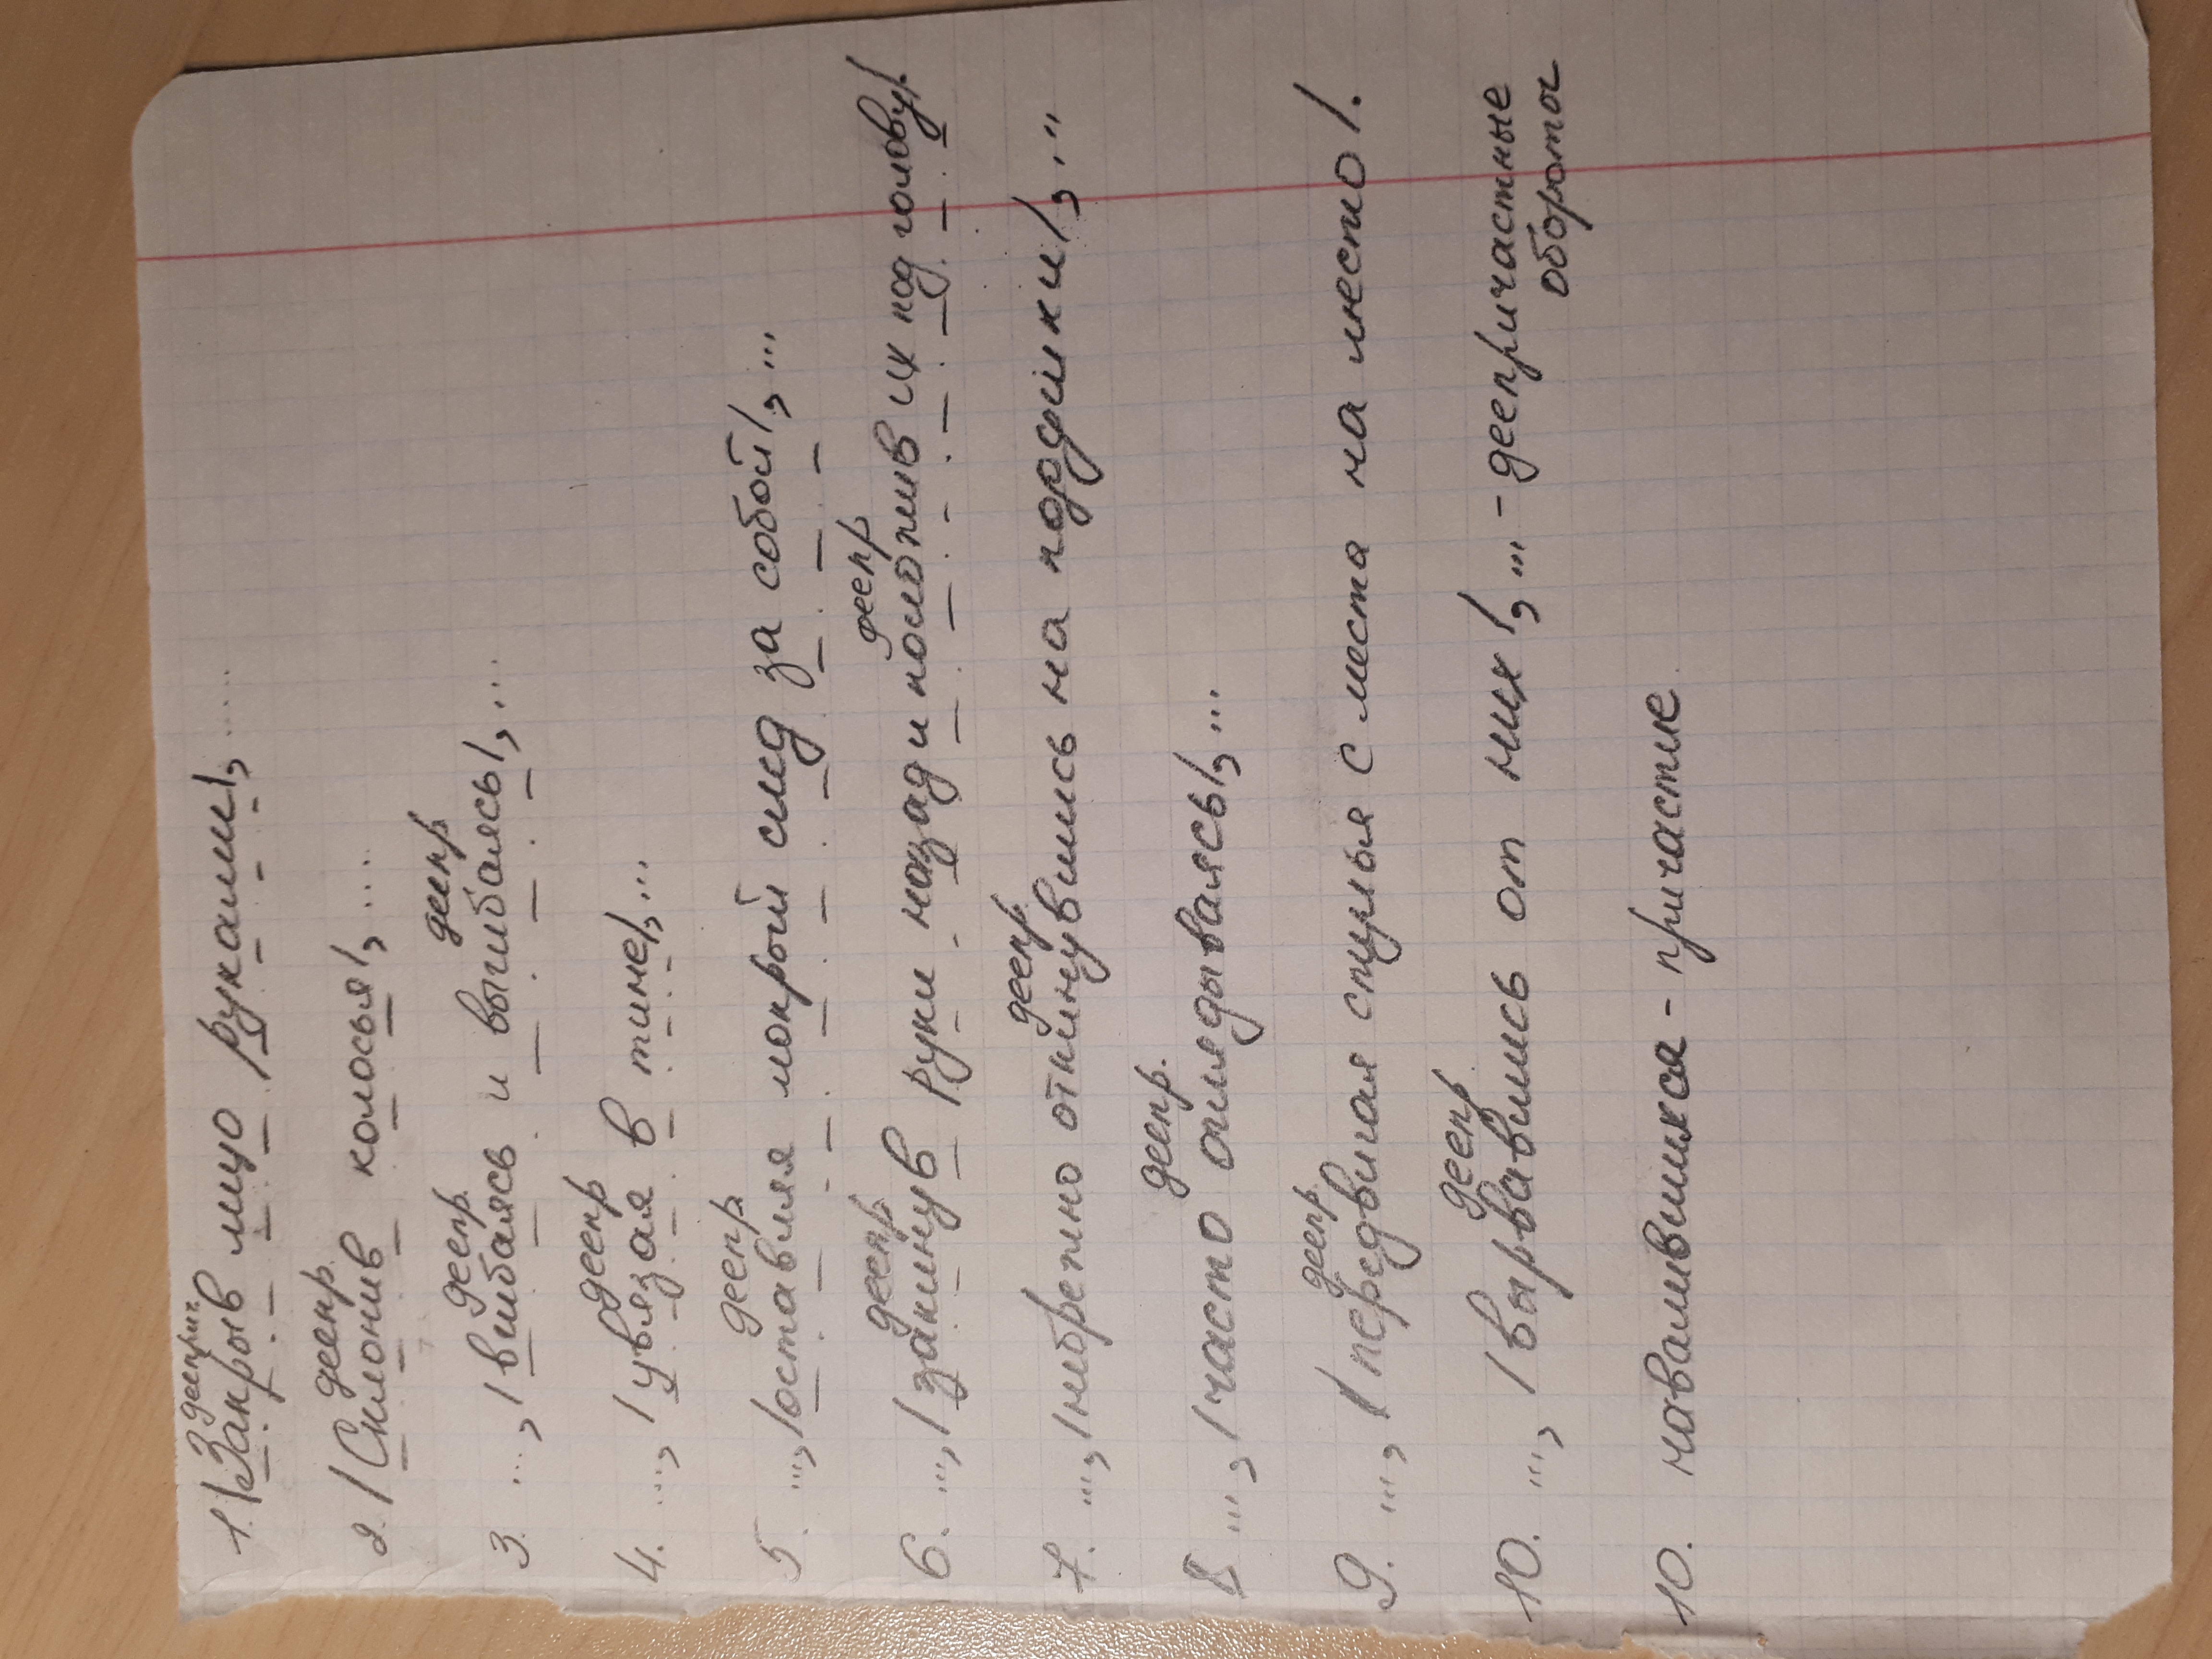 дееприч.
1. |Закрыв лицо руками|, .....
деепр.
2. |Склонив колосья|, ....
деепр. деепр
3. ..., |вшибаясь и выгибаясь|, ...
деепр
4. ..., |увязая в тине|, ...
деепр
5. ..., |оставляя мокрой след за собой|, ...
деепр. деепр
6. ..., |закинув руки назад и положив их под голову|.
деепр.
7. ..., |небрежно откинувшись на подушки|, ...
деепр.
8 ..., |часто оглядываясь|, ...
деепр.
9. ..., |передвигая стулья с места на место|.
деепр
10. ..., |вырвавшись от них|, ... - деепричастные
обороты
10. навалившихся - причастие